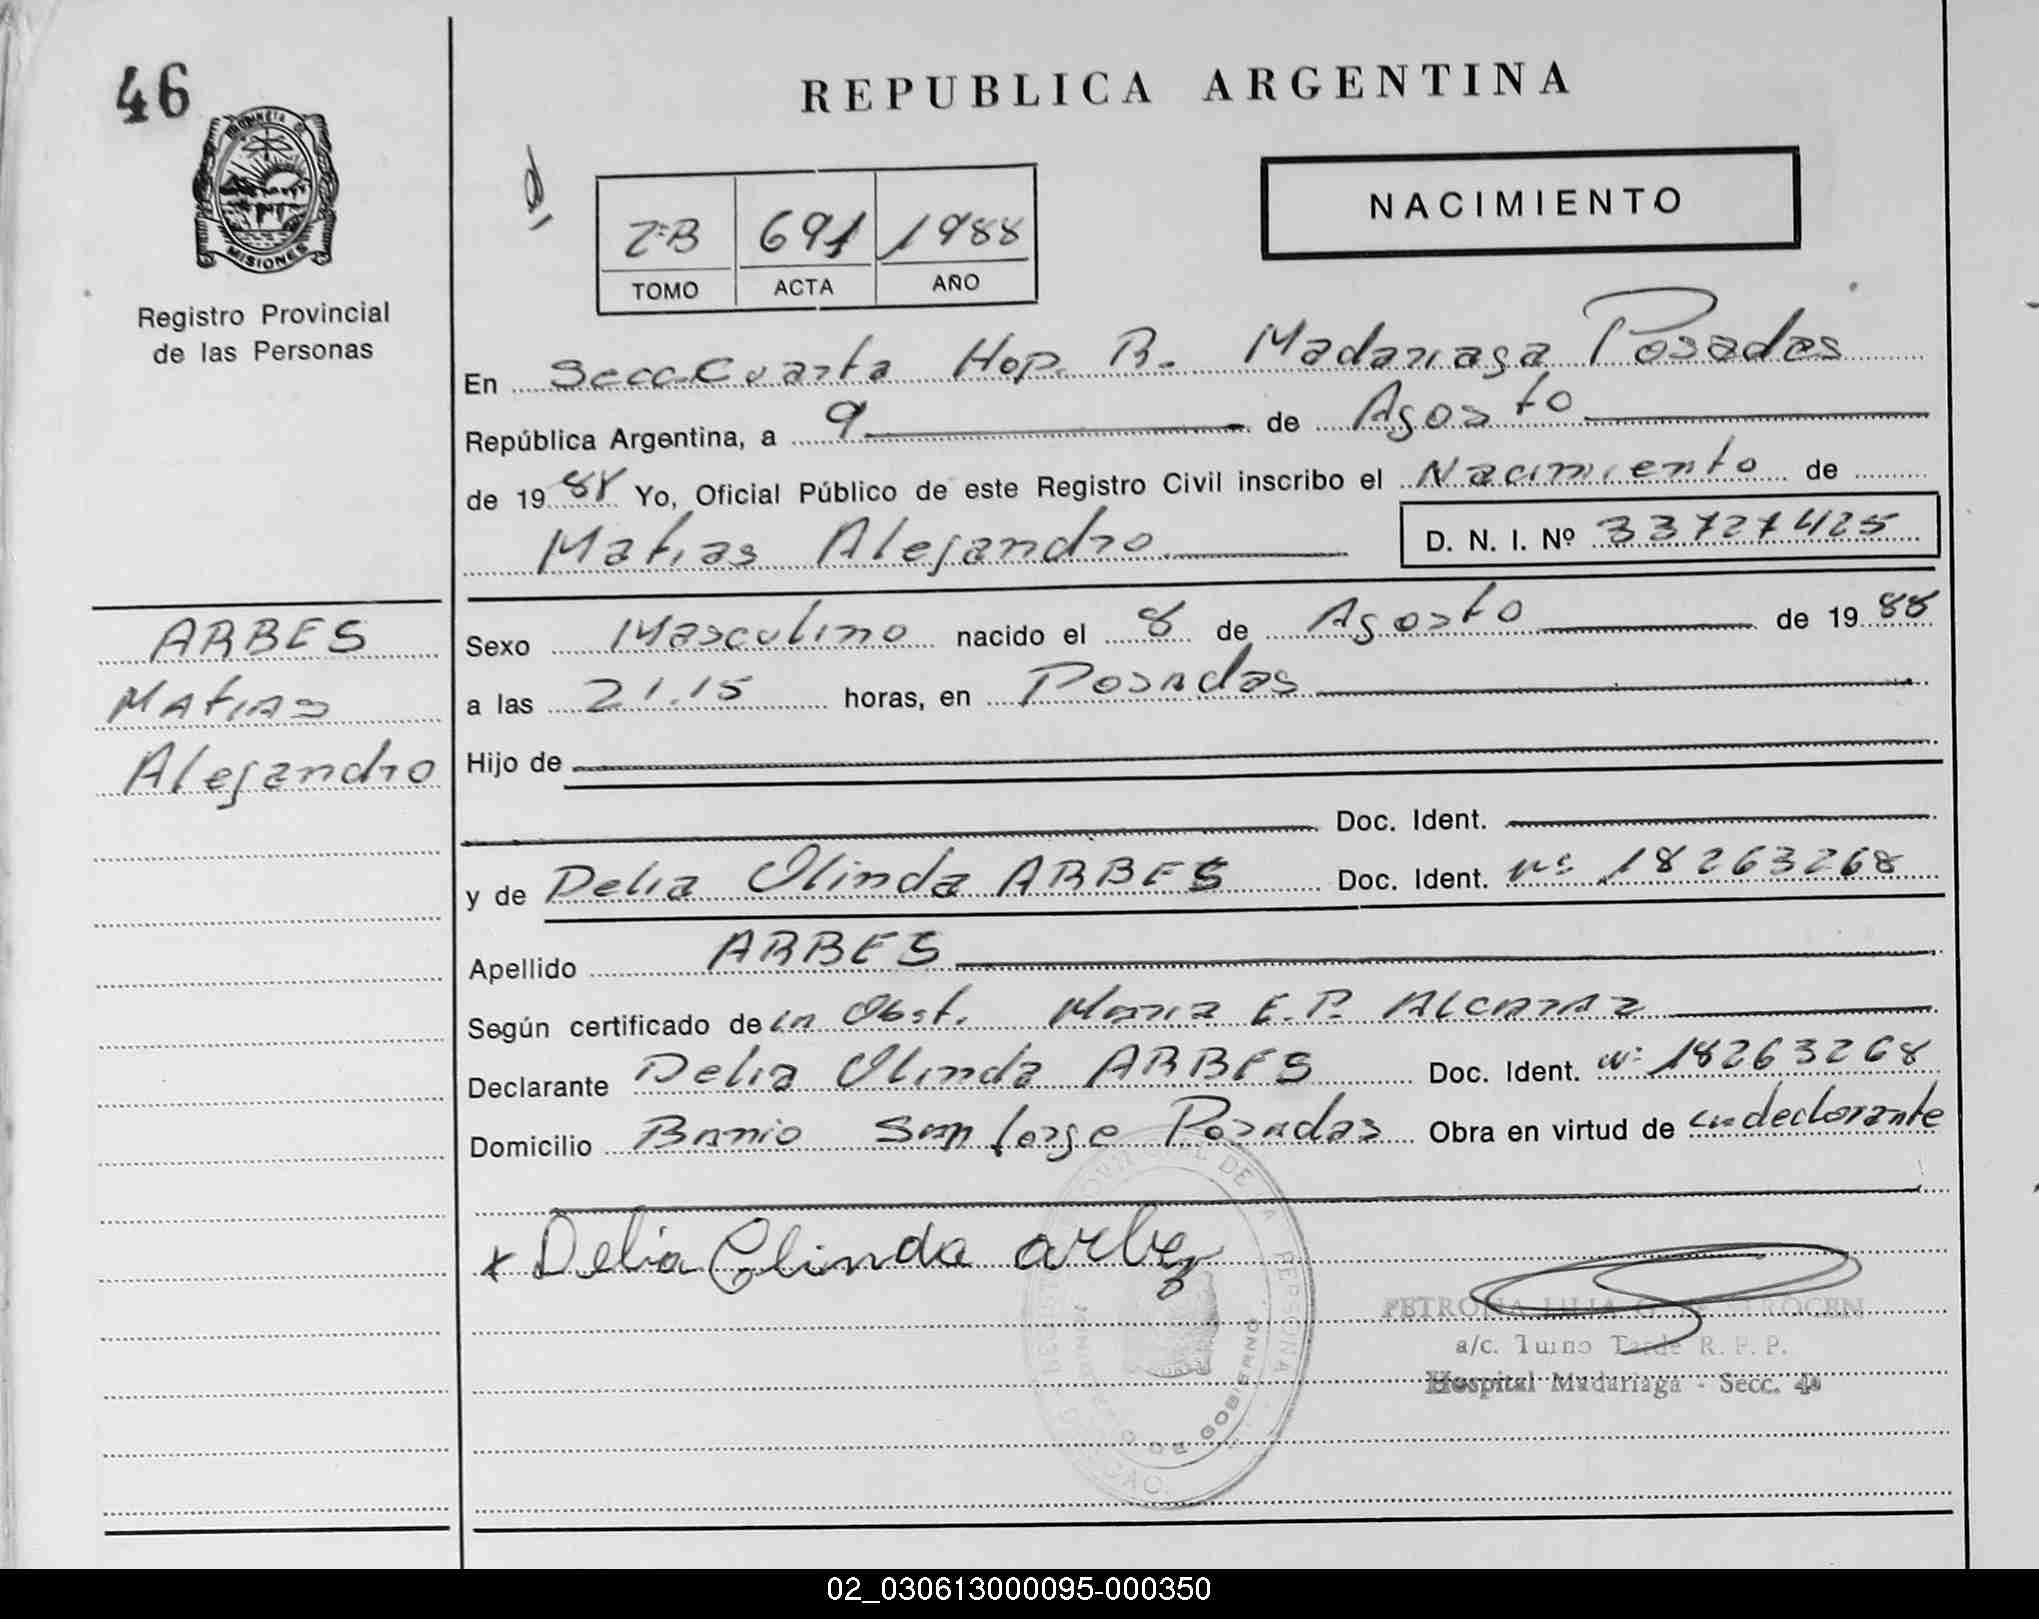 46
REPUBLICA ARGENTINA
PROVINCIA DE
MISIONES
Registro Provincial
de las Personas
2ºB 691 1988
TOMO ACTA AÑO
NACIMIENTO
En Secc. Cuarta Hop. R. Madariaga Posadas
República Argentina, a 9 de Agosto
de 1988 Yo, Oficial Público de este Registro Civil inscribo el Nacimiento de
Matias Alejandro D. N. I. Nº 33727425
ARBES
Matias
Alejandro
Sexo Masculino nacido el 8 de Agosto de 1988
a las 21.15 horas, en Posadas
Hijo de
Doc. Ident.
y de Delia Olinda ARBES Doc. Ident. Nº 18263268
Apellido ARBES
Según certificado de la Obst. Maria E. P. Alcaraz
Declarante Delia Olinda ARBES Doc. Ident. Nº 18263268
Domicilio Barrio San Jorge Posadas Obra en virtud de su declarante
x Delia Olinda arbez
PETRONA LILIA G.
a/c. Turno Tarde R. P. P.
Hospital Madariaga - Secc. 4a
GOBIERNO
02_030613000095-000350